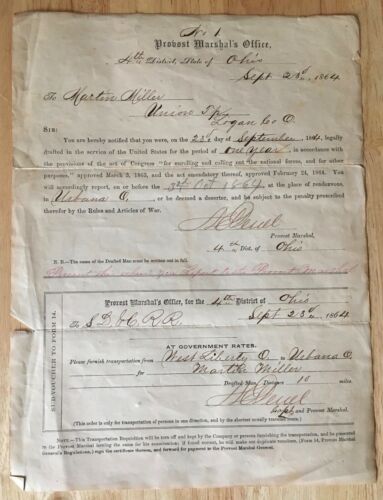 No 1
Provost Marshal's Office,
4th District, State of Ohio
Sept 23d, 1864
To Martin Miller
Union Tp,
Logan Co O.
SIR:
You are hereby notified that you were, on the 23d day of September, 1864, legally
drafted in the service of the United States for the period of one year, in accordance with
the provisions of the act of Congress "for enrolling and calling out the national forces, and for other
purposes," approved March 3, 1863, and the act amendatory thereof, approved February 24, 1864. You
will accordingly report, on or before the 3rd Oct 1864, at the place of rendezvous,
in Urbana O., or be deemed a deserter, and be subject to the penalty prescribed
therefor by the Rules and Articles of War.
Provost Marshal,
4th Dist. of Ohio
N. B.—The name of the Drafted Man must be written out in full.
Present this when you Report to the Provost Marshal
SUB-VOUCHER TO FORM 14.
Provost Marshal's Office, for the 4th District of Ohio
Sept 23d, 1864
To S D & C. R. R.
AT GOVERNMENT RATES.
Please furnish transportation from West Liberty O. to Urbana O.
for Martin Miller
Drafted Man. Distance 10 miles.
Capt and Provost Marshal.
(This order is only for the transportation of persons in one direction, and by the shortest usually transient route.)
NOTE.—This Transportation Requisition will be torn off and kept by the Company or persons furnishing the transportation, and be presented
to the Provost Marshal issuing the same for his examination; if found correct, he will make out duplicate vouchers, (Form 14, Provost Marshal
General's Regulations,) sign the certificate thereon, and forward for payment to the Provost Marshal General.